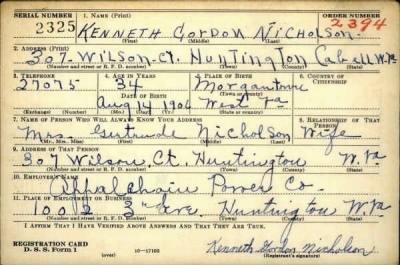 SERIAL NUMBER 1. NAME (Print) ORDER NUMBER
2325 KENNETH GORDON NICHOLSON 2394
(First) (Middle) (Last)
2. ADDRESS (Print)
307 WILSON-Ct. HUNTINGTON Cabell W.Va
(Number and street or R. F. D. number) (Town) (County) (State)
3. TELEPHONE 4. AGE IN YEARS 5. PLACE OF BIRTH 6. COUNTRY OF CITIZENSHIP
27075 34 Morgantown
DATE OF BIRTH (Town or county)
Aug 14 1906 West Va
(Exchange) (Number) (Mo.) (Day) (Yr.) (State or country)
7. NAME OF PERSON WHO WILL ALWAYS KNOW YOUR ADDRESS 8. RELATIONSHIP OF THAT PERSON
Mrs Gertrude Nicholson Wife
(Mr., Mrs., Miss) (First) (Middle) (Last)
9. ADDRESS OF THAT PERSON
307 Wilson Ct. Huntington W.Va
(Number and street or R. F. D. number) (Town) (County) (State)
10. EMPLOYER'S NAME
Appalachain Power Co
11. PLACE OF EMPLOYMENT OR BUSINESS
1002 3rd Ave. Huntington W.Va
(Number and street or R. F. D. number) (Town) (County) (State)
I AFFIRM THAT I HAVE VERIFIED ABOVE ANSWERS AND THAT THEY ARE TRUE.
REGISTRATION CARD
D. S. S. Form 1 (over) Kenneth Gordon Nicholson
(Registrant's signature)